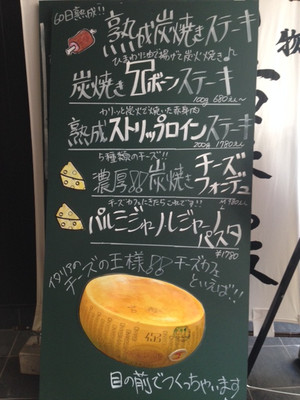 60日熟成!!
熟成炭焼きステーキ
ひまわり油で揚げて炭火焼き♪
炭焼きTボーンステーキ
100g 680えん〜
カリッと炭火で焼いた赤身肉
熟成ストリップロインステーキ
200g 1780えん
5種類のチーズ!!
濃厚炭焼きチーズ
フォンデュ
チーズカフェときたらこれです!!
パルミジャーノレジャーノ
パスタ
¥1780
イタリアの
チーズの王様
チーズカフェ
といえば!!
目の前でつくっちゃいます